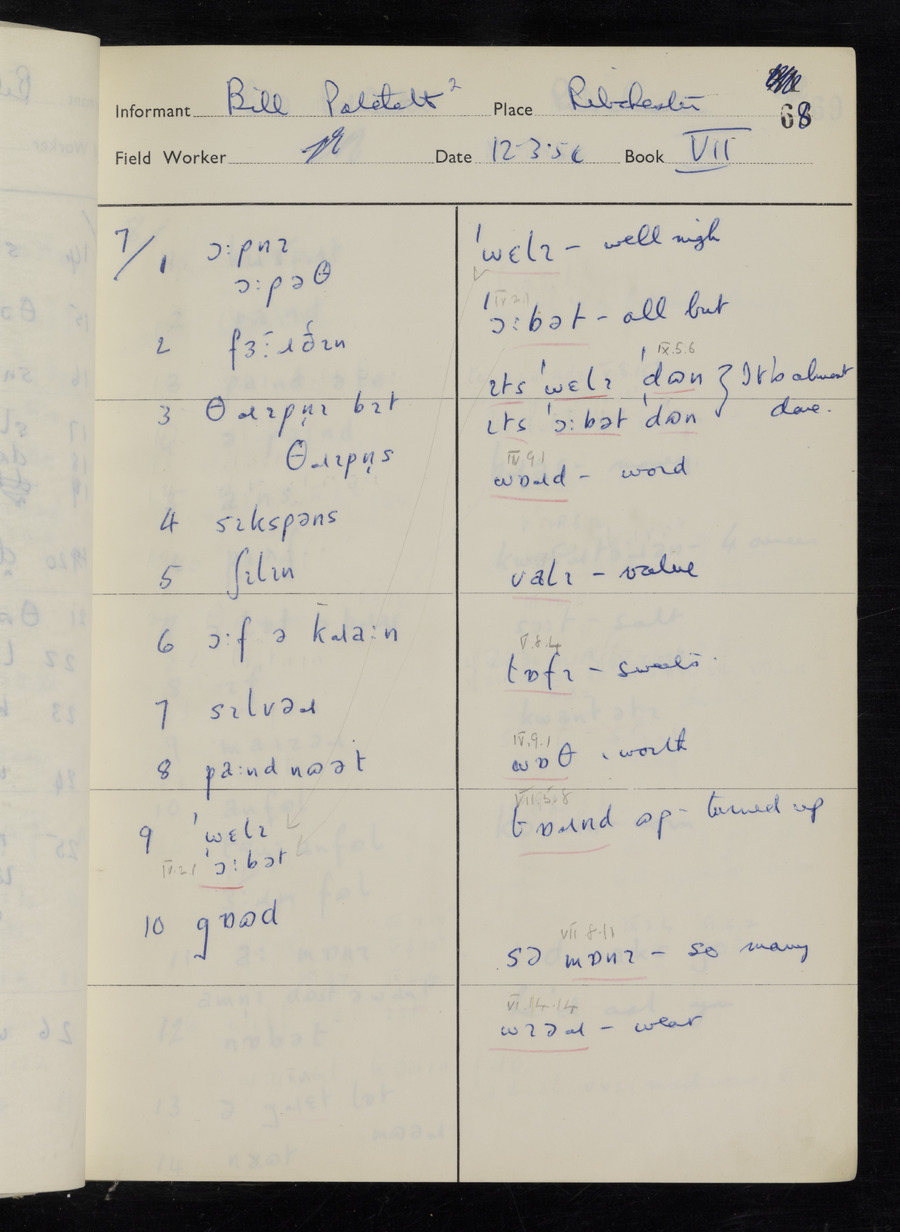 Informant Bill Place Ribchester 68
Field Worker Date 12·3·5 Book VII
7/1 ɔ:pnɪ
ɔ:pəθ
2
3 θɹɪpn̩ɪ bɪt
θɹɪpn̩s
4 sɪkspəns
5 ʃɪlɪn
6 ɔ:f ə kɹa:n
7 sɪlvəɹ
8 pa:nd nɷət
9 'wɛlɪ
IV.2.1 'ɔ:bət
10 gɒɷd
'wɛlɪ – well nigh
IV.2.1
'ɔ:bət – all but
IX.5.6
ɪts 'wɛlɪ 'dɷn } It's almost
ɪts 'ɔ:bət 'dɷn done.
IV.9.1
wɒɹd – word
valɪ – value
V.8.4
tɒfɪ – sweets
IV.9.1
wɒθ . worth
VII.5.8
tɒɹnd ɷp – turned up
VII 8·11
sə mɒnɪ – so many
VI.14.14
wɪəɹ – wear